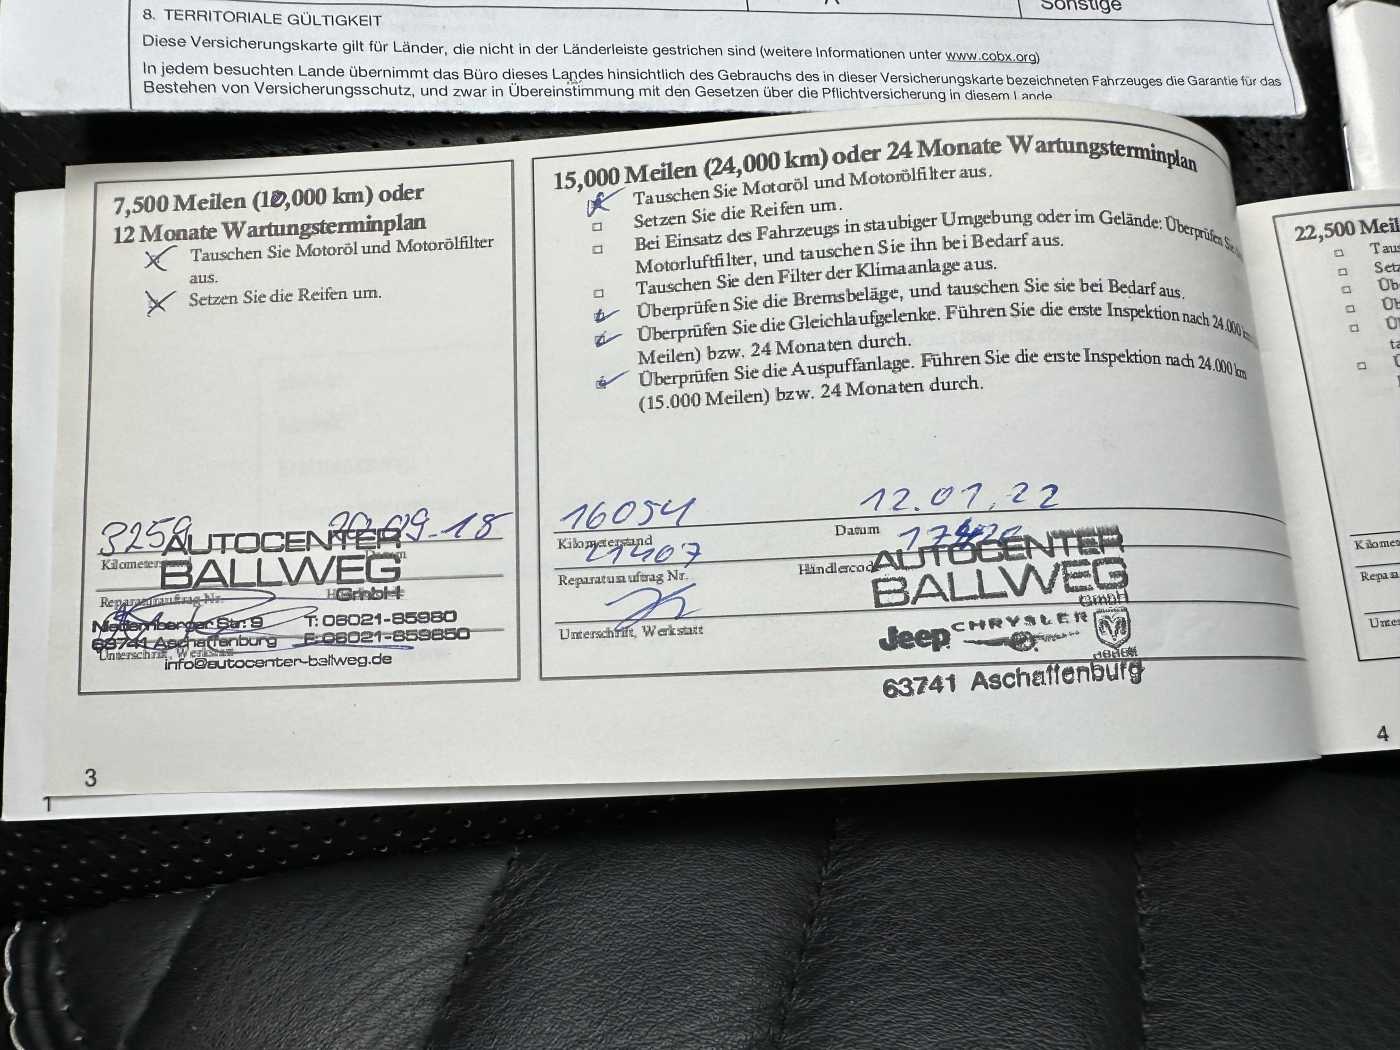 Sonstige
8. TERRITORIALE GÜLTIGKEIT
Diese Versicherungskarte gilt für Länder, die nicht in der Länderleiste gestrichen sind (weitere Informationen unter www.cobx.org)
In jedem besuchten Lande übernimmt das Büro dieses Landes hinsichtlich des Gebrauchs des in dieser Versicherungskarte bezeichneten Fahrzeuges die Garantie für das
Bestehen von Versicherungsschutz, und zwar in Übereinstimmung mit den Gesetzen über die Pflichtversicherung in diesem Lande
7,500 Meilen (10,000 km) oder
12 Monate Wartungsterminplan
Tauschen Sie Motoröl und Motorölfilter
aus.
Setzen Sie die Reifen um.
3259
09-18
AUTOCENTER
Kilometer
BALLWEG
GmbH
Reparaturauftrag Nr.
Niedernberger Str. 9 T: 06021-85980
63741 Aschaffenburg F: 06021-859850
Unterschrift, Werkstatt
info@autocenter-ballweg.de
3
1
15,000 Meilen (24,000 km) oder 24 Monate Wartungsterminplan
Tauschen Sie Motoröl und Motorölfilter aus.
Setzen Sie die Reifen um.
Bei Einsatz des Fahrzeugs in staubiger Umgebung oder im Gelände: Überprüfen Sie
Motorluftfilter, und tauschen Sie ihn bei Bedarf aus.
Tauschen Sie den Filter der Klimaanlage aus.
Überprüfen Sie die Bremsbeläge, und tauschen Sie sie bei Bedarf aus.
Überprüfen Sie die Gleichlaufgelenke. Führen Sie die erste Inspektion nach 24.000 km
Meilen) bzw. 24 Monaten durch.
Überprüfen Sie die Auspuffanlage. Führen Sie die erste Inspektion nach 24.000 km
(15.000 Meilen) bzw. 24 Monaten durch.
16054 12.01.22
Kilometerstand Datum
Reparaturauftrag Nr. Händlercode
AUTOCENTER
BALLWEG
GmbH
Unterschrift, Werkstatt
Jeep CHRYSLER
63741 Aschaffenburg
22,500 Meil
Taus
Setz
Üb
Üb
Ü
ta
Ü
Kilome
Repa
Unter
4